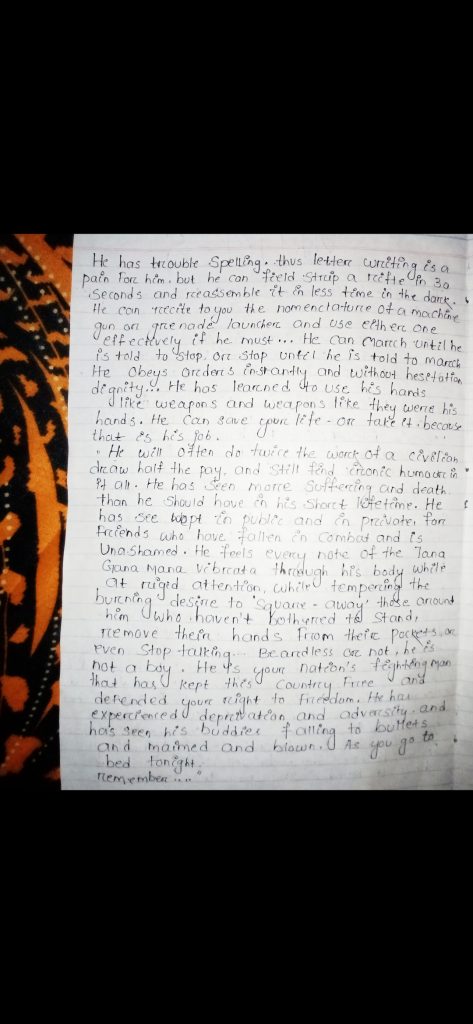 He has trouble Spelling. thus letter writing is a
pain for him. but he can field strip a rifle in 30
seconds and reassemble it in less time in the dark.
He can recite to you the nomenclature of a machine
gun or grenade launcher and use either one
effectively if he must... He can march until he
is told to stop. or stop until he is told to march
He obeys orders instantly and without hesitation
dignity... He has learned to use his hands
like weapons and weapons like they were his
hands. He can save your life - or take it. because
that is his job.
He will often do twice the work of a civilian
draw half the pay, and still find ironic humour in
it all. He has seen more suffering and death
than he should have in his short lifetime. He
has see wept in public and in private, for
friends who have fallen in combat and is
Unashamed. He feels every note of the Jana
Gana Mana vibrata through his body while
at rigid attention, while tempering the
burning desire to 'Square - away' those around
him who haven't bothyred to stand,
remove their hands from their pockets, or
even stop talking... Beardless or not, he is
not a boy. He is your nation's fighting man
that has kept this country free and
defended your right to freedom. He has
experienced deprivation, and adversity, and
has seen his buddies falling to bullets
and maimed and blown. As you go to
bed tonight.
remember...."